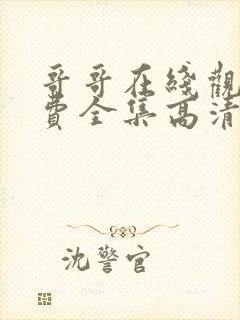 哥哥在綫觀
費全集高清
沈警官